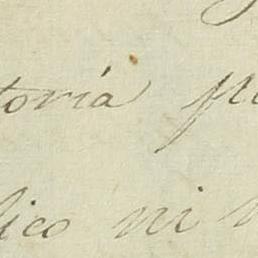 toria p
lico ni n